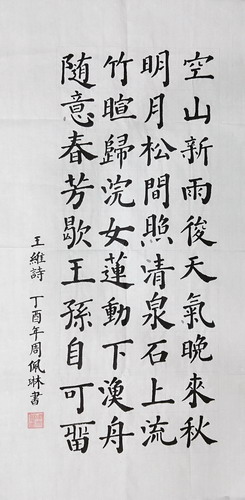 空山新雨後天氣晚來秋
明月松間照清泉石上流
竹暄歸浣女蓮動下漁舟
随意春芳歇王孫自可留
王維詩 丁酉年周佩琳書